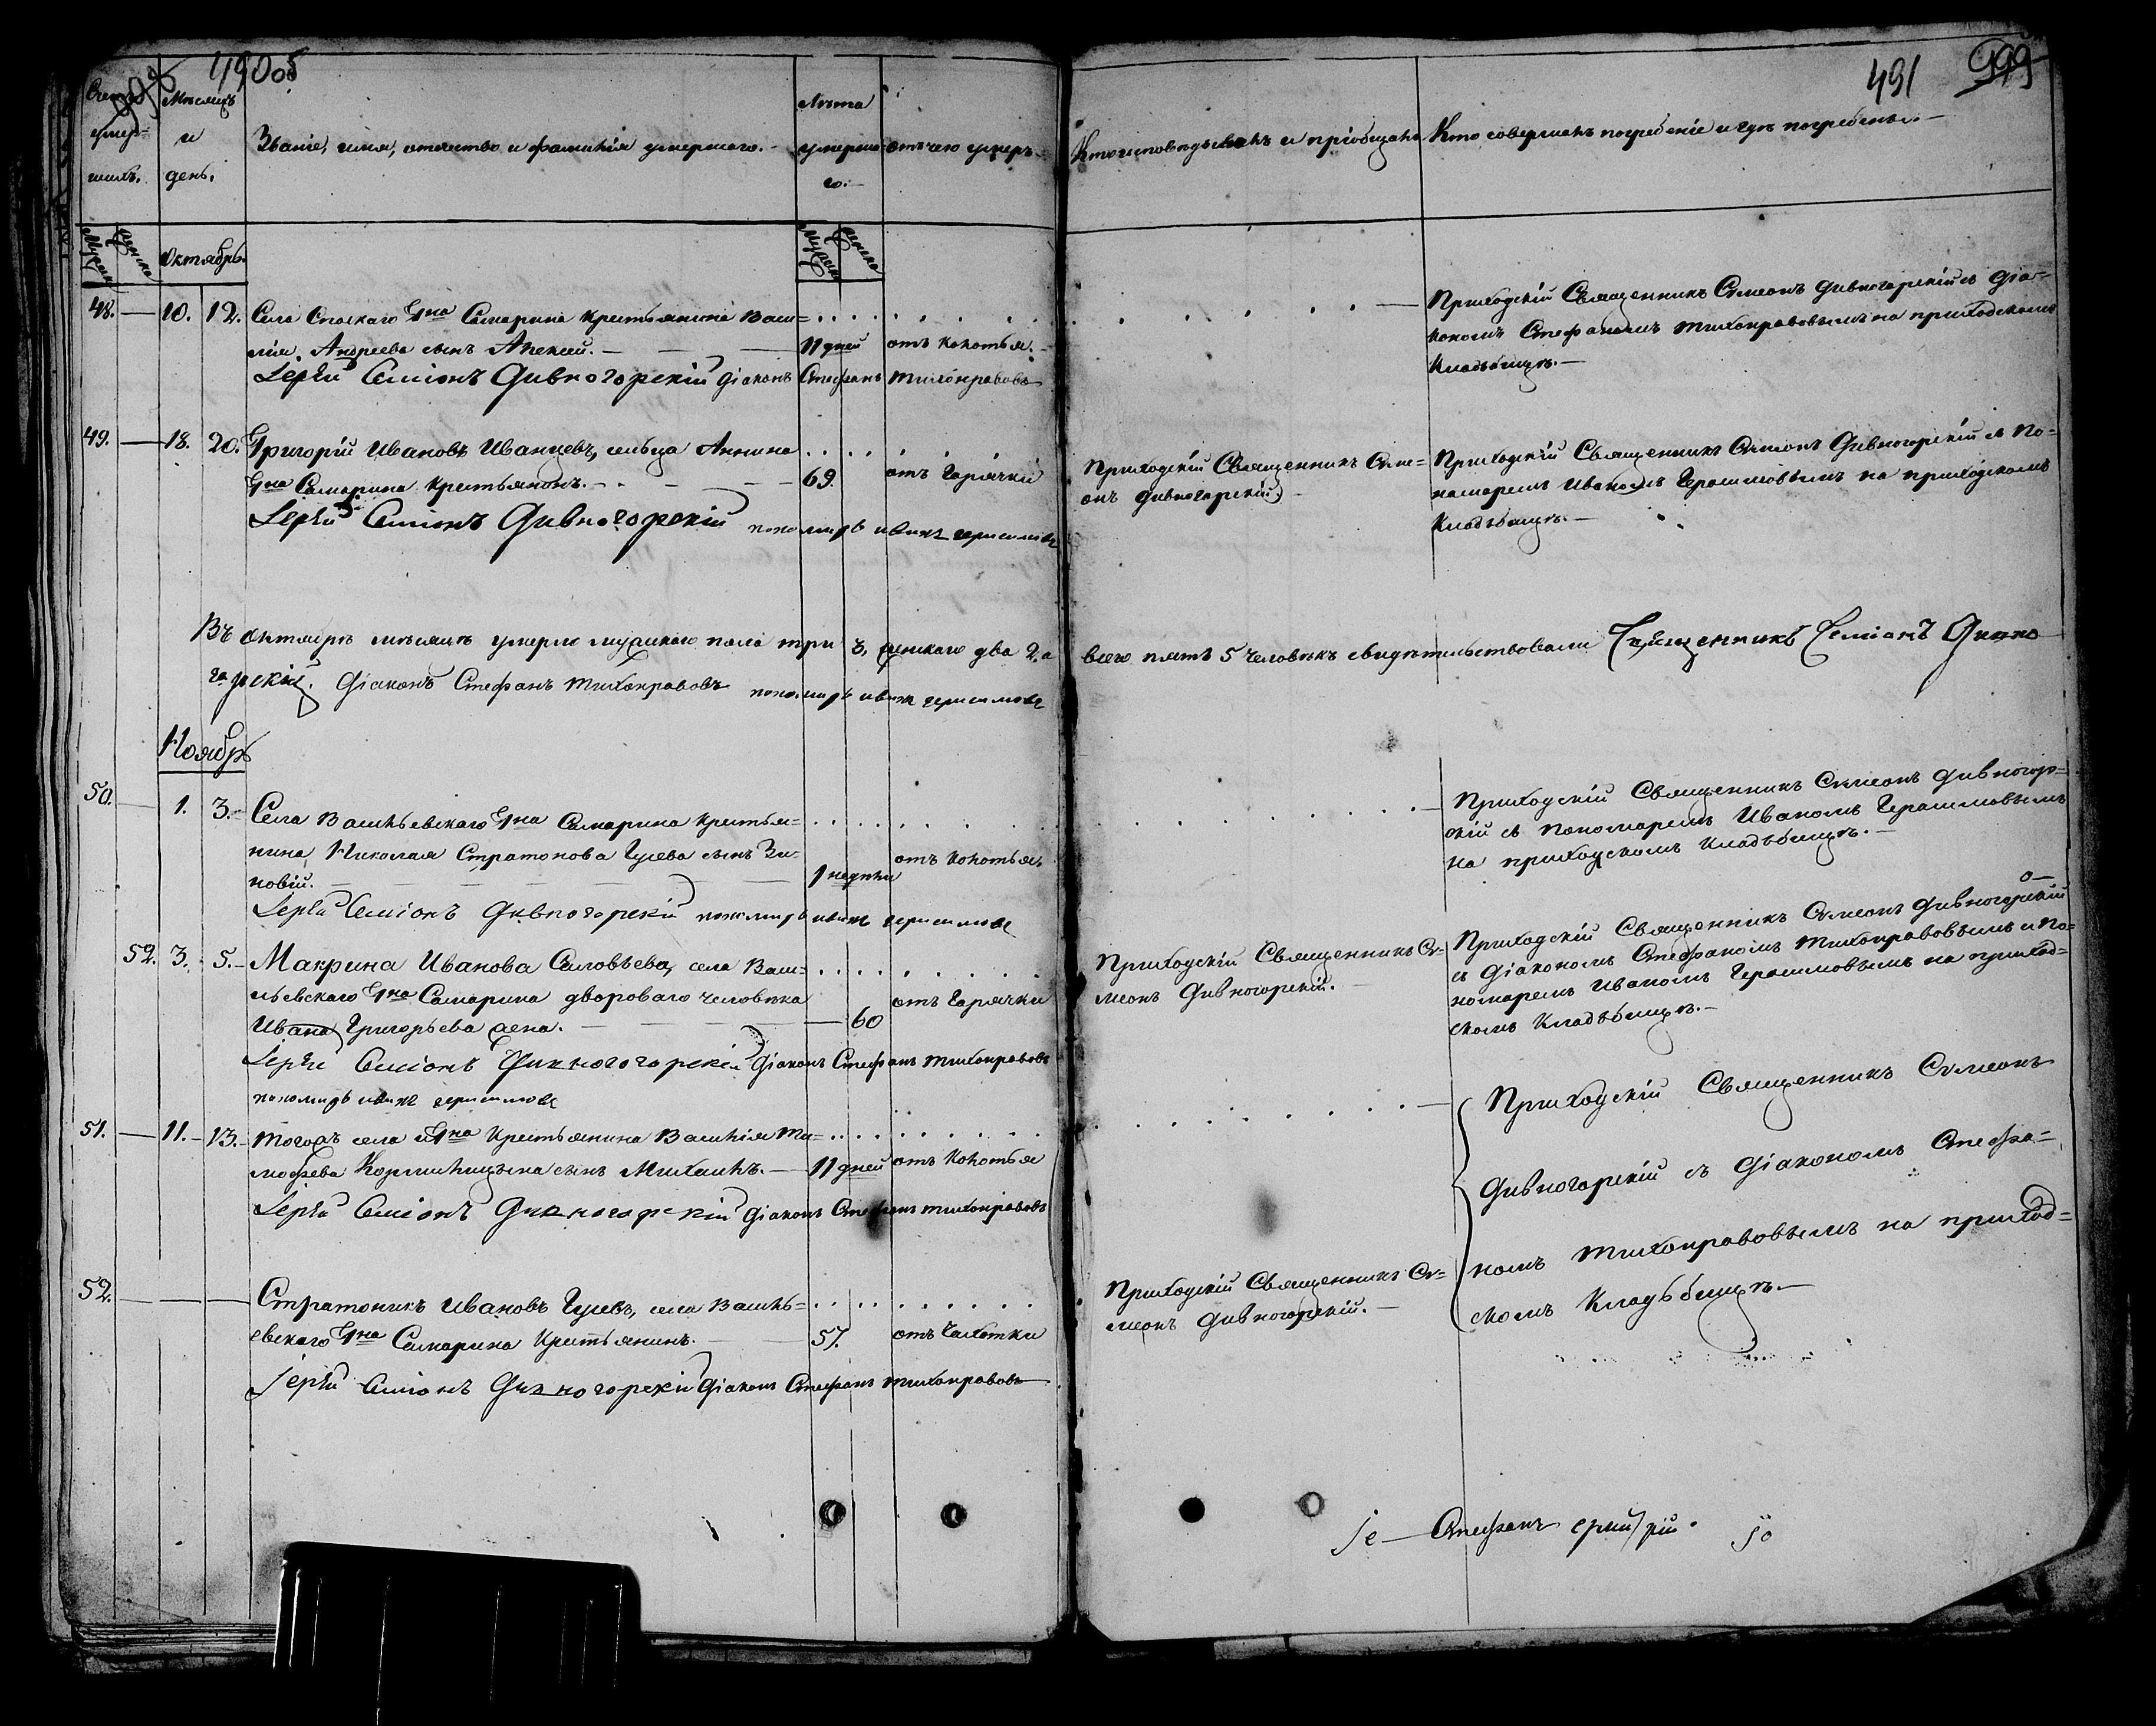 490
491
999
Счетъ умер-шихъ.
Мѣсяцъ и день.
Званіе, имя, отчество и фамилія умершаго.
Лѣта умерша-го.
отъ чего умеръ.
Кто исповѣдывалъ и пріобщалъ
Кто совершалъ погребеніе и гдѣ погребены.
Мужск. Женска
Октябрь.
Мужск. Женска
48. — 10. 12. Села Спаскаго Гна Самарина крестьянина Васи=
лія Андреева сынъ Алексей. — 11 дней отъ колотья.
Іерей Симіонъ Дивногорскій діаконъ Стефанъ Тихонравовъ
Приходскій Священникъ Сѵмеонъ Дивногорскій съ діа-
кономъ Стефаномъ Тихонравовымъ на приходскомъ
кладбищѣ. —
49. — 18. 20. Григорій Ивановъ Иванцевъ, сельца Аннина
Гна Самарина крестьянинъ. — 69. отъ горячки
Іерей Симіонъ Дивногорскій пономарь иванъ герасимовъ
Приходскій Священникъ Сѵме=
онъ Дивногорскій
Приходскій Священникъ Сѵмеонъ Дивногорскій съ по=
номаремъ Иваномъ Герасимовымъ на приходскомъ
кладбищѣ. —
Въ октябрѣ мѣсяцѣ умерло мужскаго пола три 3, женскаго два 2, а всего пять 5 человѣкъ свидѣтельствовали Священникъ Семіонъ Дивно
горскій. Діаконъ Стефанъ Тихонравовъ пономарь иванъ герасимовъ
Ноябрь
50. — 1. 3. Села Васильевскаго Гна Самарина крестья=
нина Николая Стратонова Гусева сынъ Зи-
новій. — 1 недѣли отъ колотья.
Іерей Симіонъ Дивногорскій пономарь иванъ герасимовъ
Приходскій Священникъ Сѵмеонъ Дивногор=
скій съ пономаремъ Иваномъ Герасимовымъ
на приходскомъ кладбищѣ. —
52. 3. 5. Макрина Иванова Соловьева, села Васи=
льевскаго Гна Самарина двороваго человѣка
Ивана Григорьева жена. — 60 отъ горячки
Іерей Симіонъ Дивногорскій Діаконъ Стефанъ Тихонравовъ
пономарь иванъ герасимовъ
Приходскій Священникъ Сѵ=
меонъ Дивногорскій. —
Приходскій Священникъ Сѵмеонъ Дивногорскій
съ Діакономъ Стефаномъ Тихонравовымъ и по=
номаремъ Иваномъ Герасимовымъ на приход=
скомъ кладбищѣ. —
51. — 11. — 13. Тогожъ села и Гна крестьянина Василія Ти=
мофеева сынъ Михаилъ. — 11 дней отъ колотья
Іерей Симіонъ Дивногорскій Діаконъ Стефанъ Тихонравовъ
Приходскій Священникъ Сѵмеонъ
Дивногорскій съ Діакономъ Стефа=
номъ Тихонравовымъ на приход=
скомъ кладбищѣ. —
52. Стратоникъ Ивановъ Гусевъ, села Василь=
евскаго Гна Самарина крестьянинъ. — 57. отъ чахотки
Іерей Симіонъ Дивногорскій Діаконъ Стефанъ Тихонравовъ
Приходскій Священникъ Сѵ=
меонъ Дивногорскій. —
Стефанъ